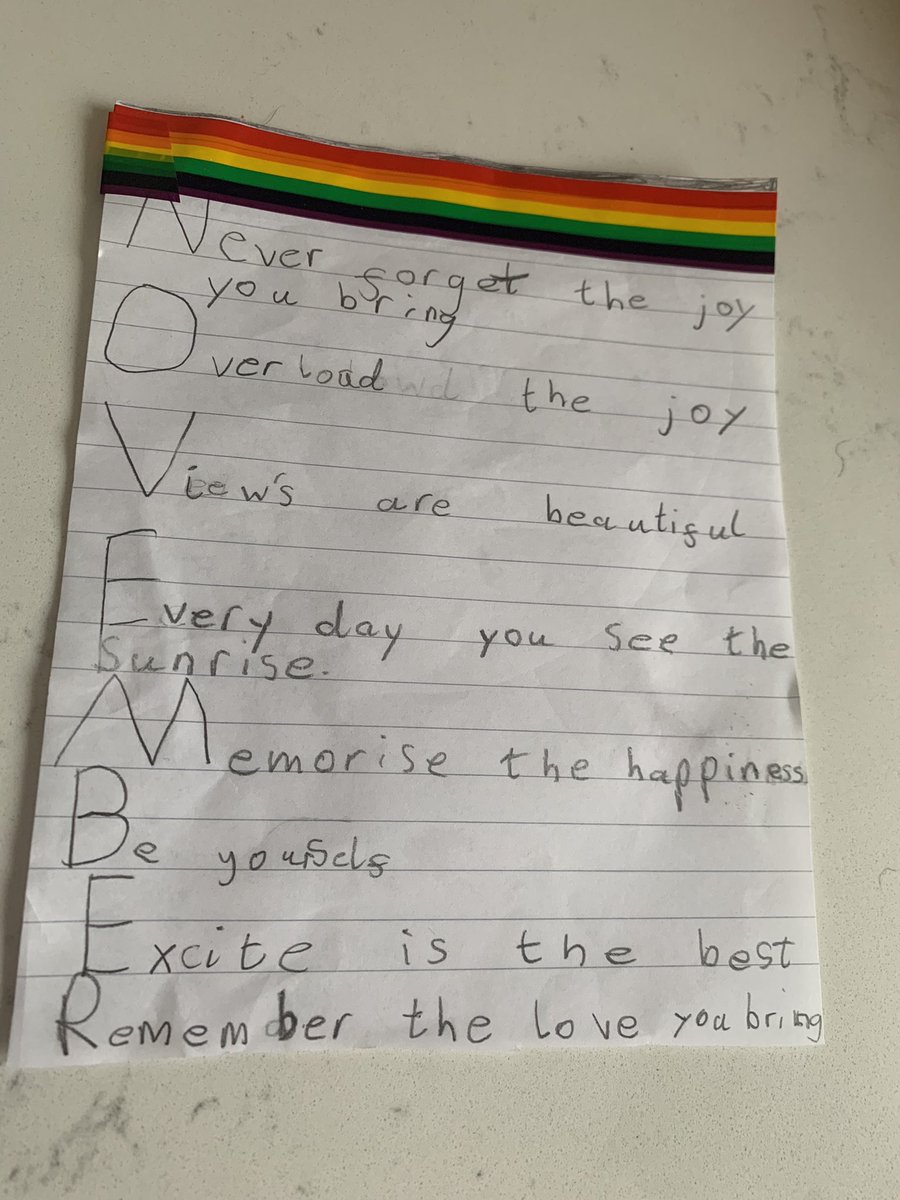 Never forget the joy
you bring
Overload the joy
View's are beautiful
Every day you see the
Sunrise.
Memorise the happiness
Be yourself
Excite is the best
Remember the love you bring